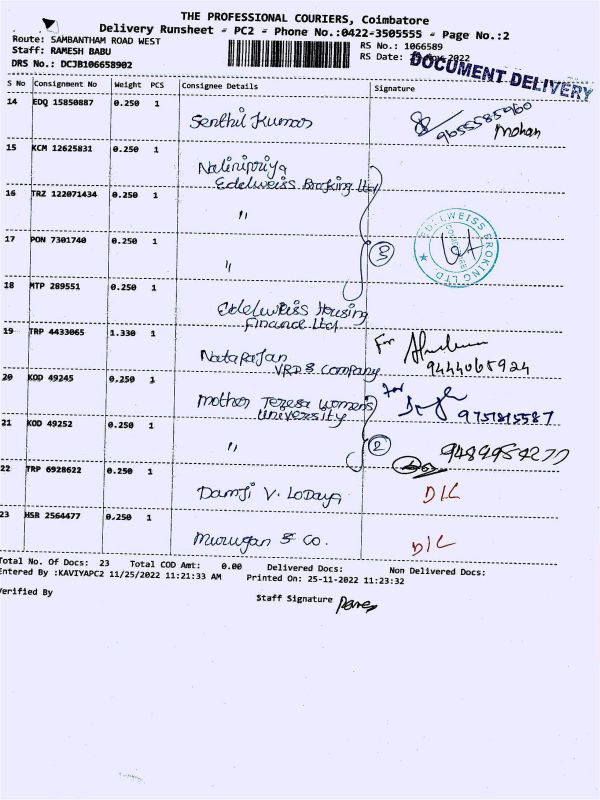 THE PROFESSIONAL COURIERS, Coimbatore
Delivery Runsheet - PC2 - Phone No.:0422-3505555 - Page No.:2
Route: SAMBANTHAM ROAD WEST
Staff: RAMESH BABU
DRS No.: DCJB106658902
RS No.: 1066589
RS Date: Nov 2022
DOCUMENT DELIVERY
S No Consignment No Weight PCS Consignee Details Signature
14 EDQ 15850887 0.250 1 Senthil Kumar 9655585960 Mohan
15 KCM 12625831 0.250 1 Nalinipriya
Edelweiss Broking Ltd
16 TRZ 122071434 0.250 1 "
17 PON 7301740 0.250 1 "
EDELWEISS BROKING LTD.
COIMBATORE
18 MTP 289551 0.250 1 Edelweiss Housing
Finance Ltd
19 TRP 4433065 1.330 1 Natarajan
VRD & Company
For
9444065924
20 KOD 49245 0.250 1 Mother Teresa Women's
University
for
9751815587
21 KOD 49252 0.250 1 "
2
22 TRP 6928622 0.250 1 Damji V. Lodaya D/L
23 HSR 2564477 0.250 1 Murugan & Co. D/L
Total No. Of Docs: 23 Total COD Amt: 0.00 Delivered Docs: Non Delivered Docs:
Entered By :KAVIYAPC2 11/25/2022 11:21:33 AM Printed On: 25-11-2022 11:23:32
Verified By
Staff Signature